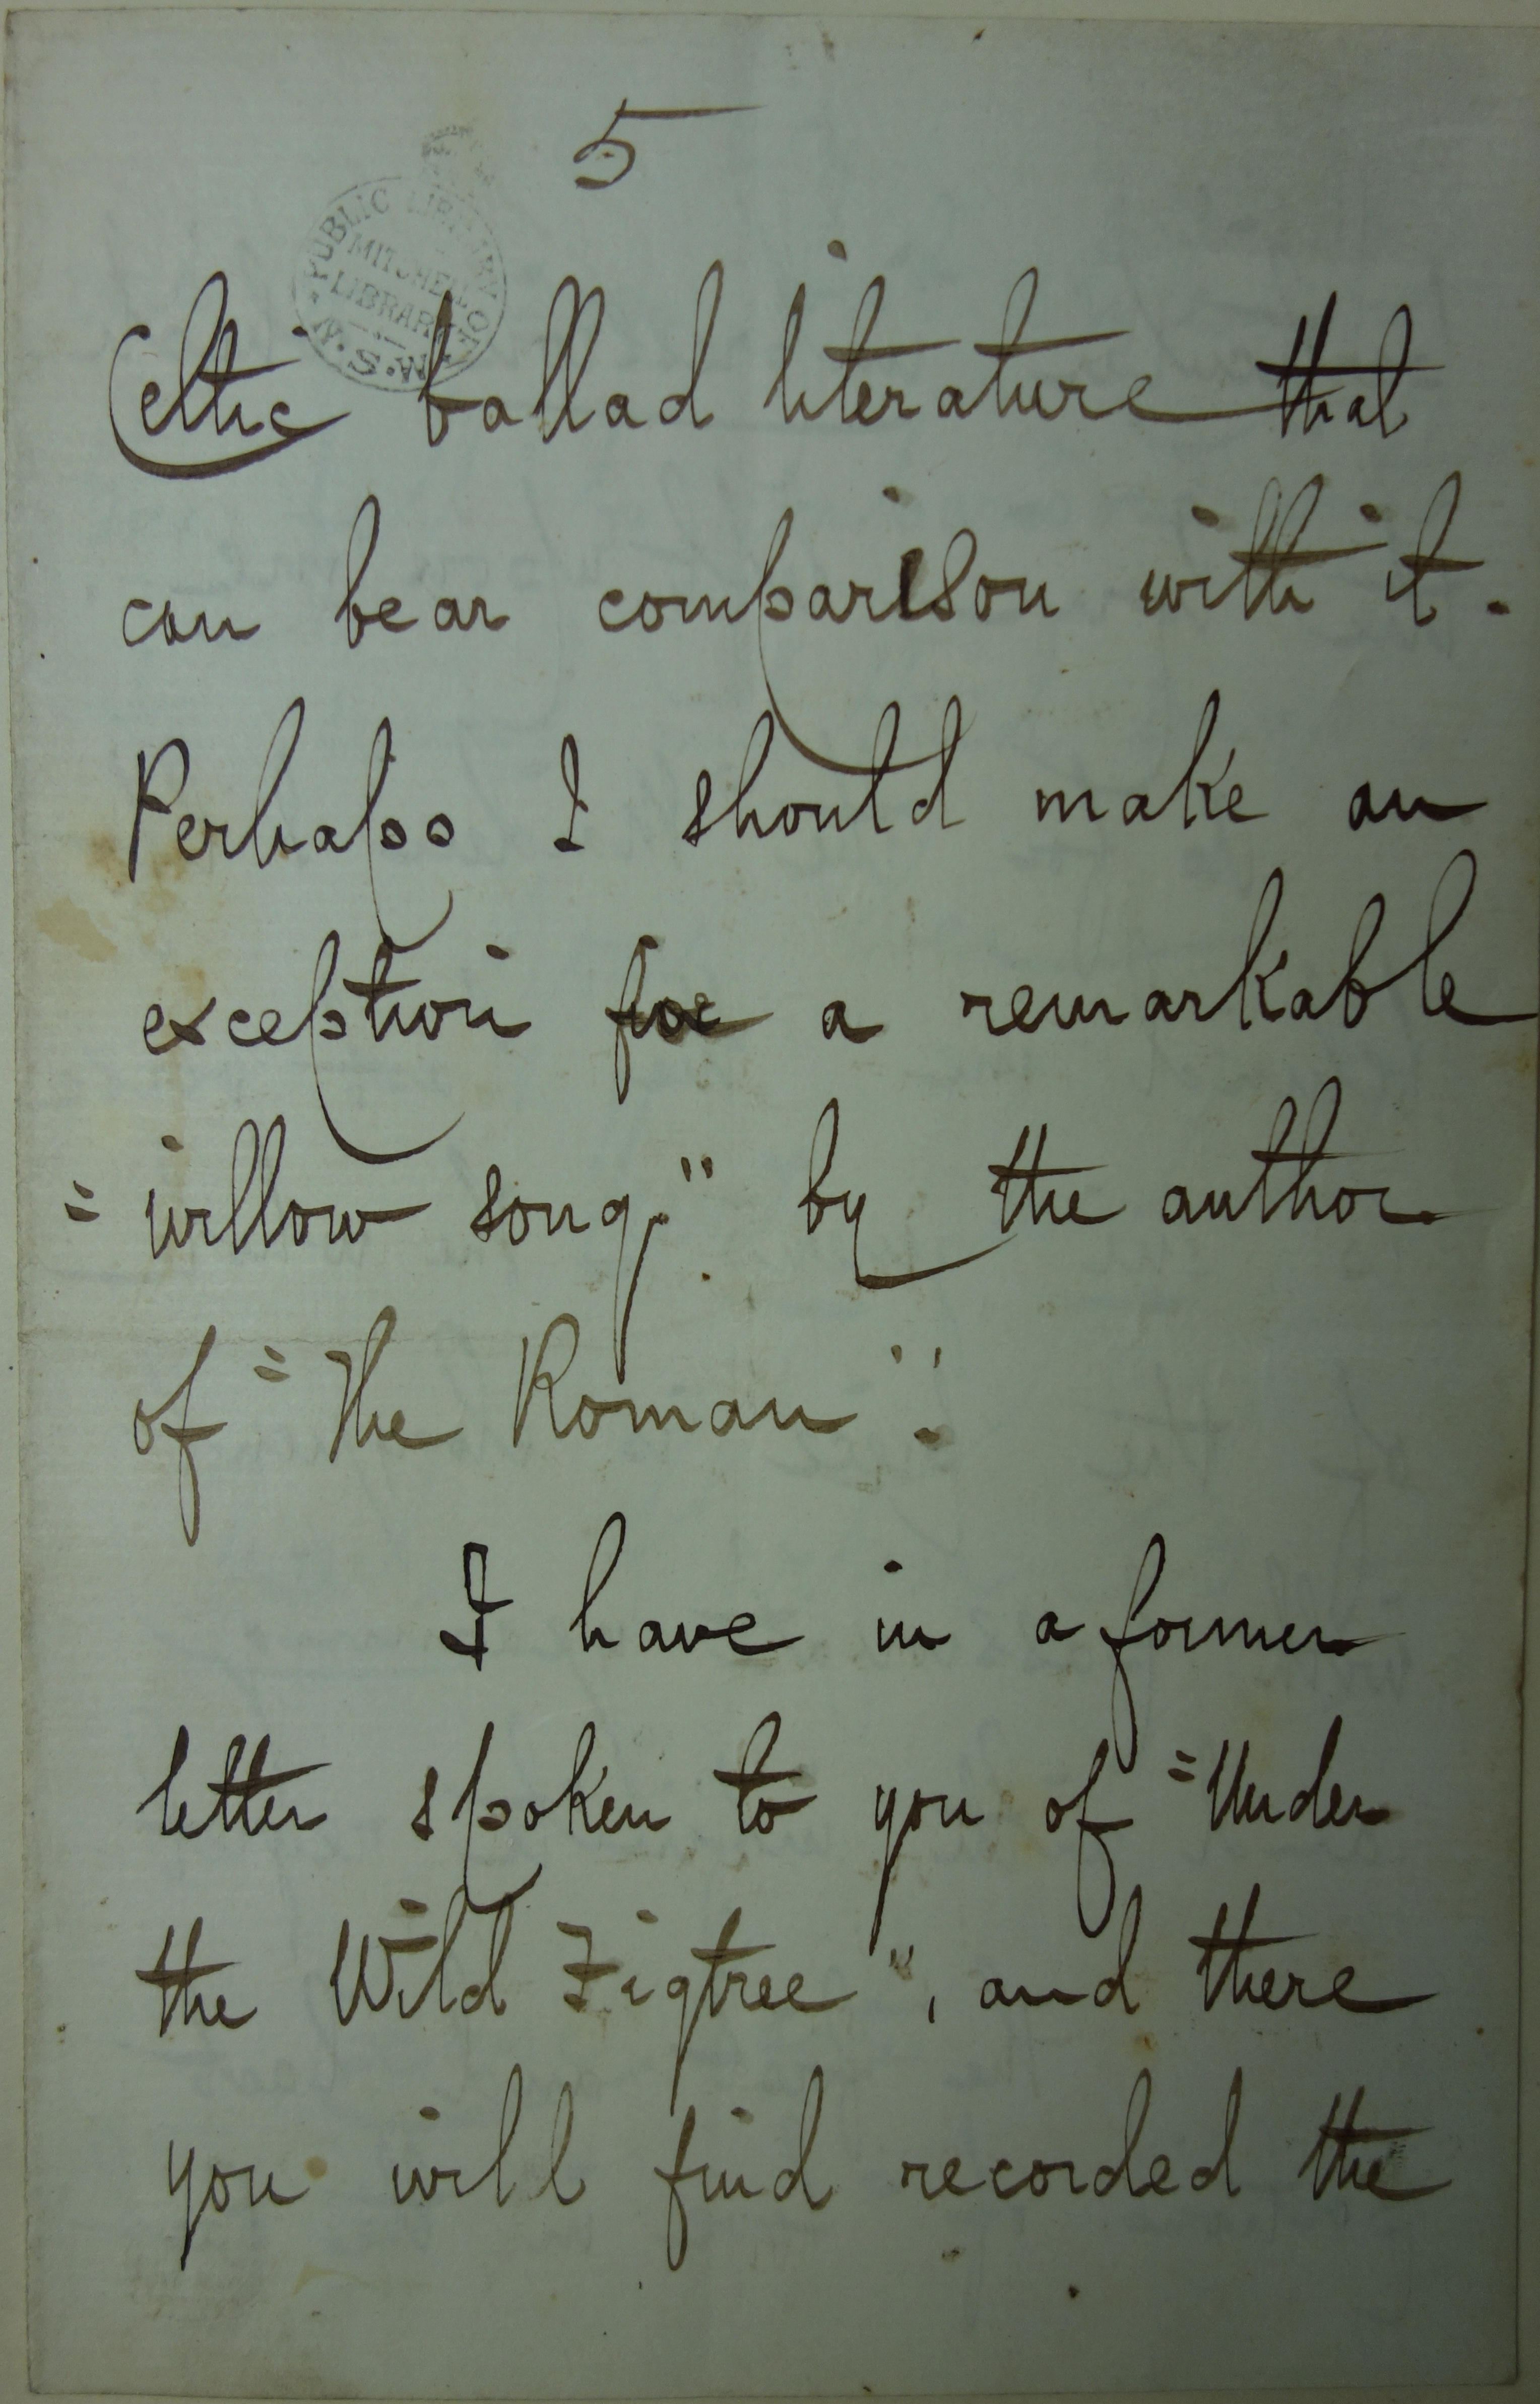 5
PUBLIC LIBRARY OF N.S.W.
MITCHELL
LIBRARY
Celtic ballad literature that
can bear comparison with it.
Perhaps I should make an
exception for a remarkable
"willow song." by the author
of "The Roman".
I have in a former
letter spoken to you of "Under
the Wild Figtree", and there
you will find recorded the